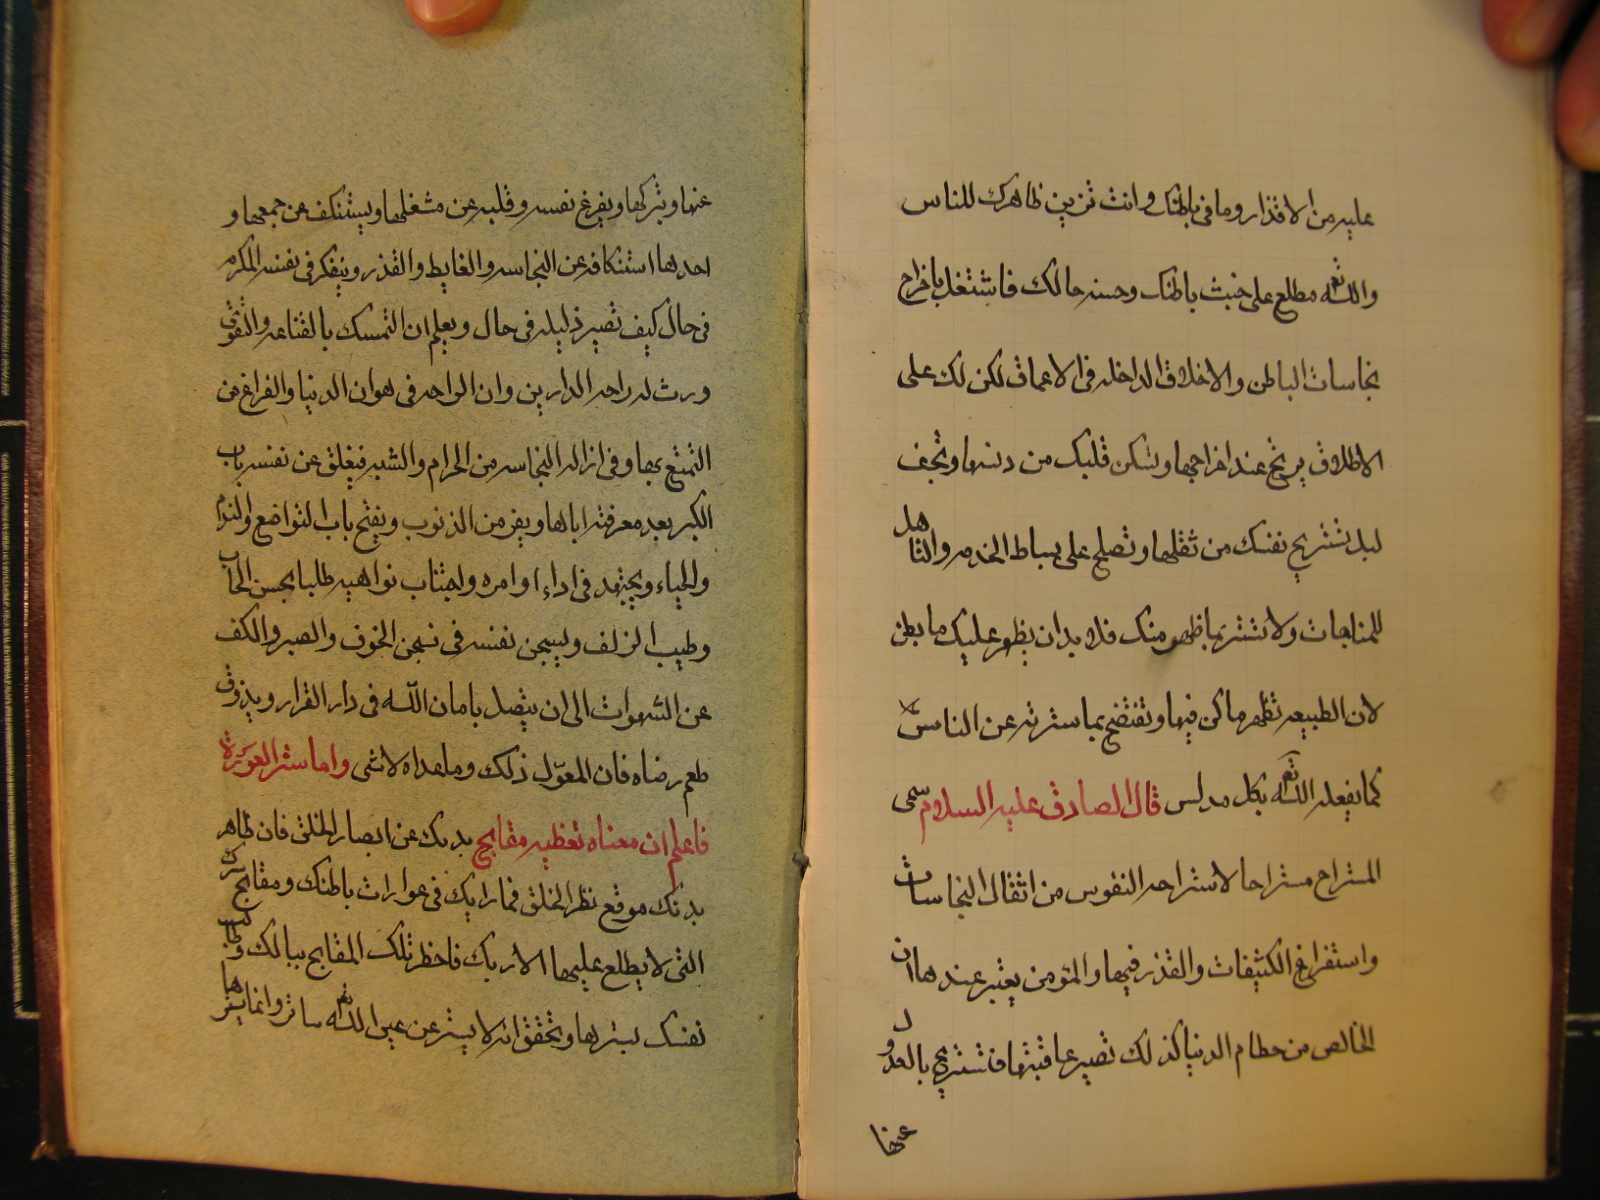 عليه من الاقذار وما فى باطنك وانت تزين ظاهرك للناس
والله تعه مطلع على خبث باطنك وخسة حالك فاشتغل باخراج
نجاسات الباطن والاخلاق الداخله فى الاعماق لكن لك على
الاطلاق يريح عند اخراجها وتسكن قلبك من دنسها ويخف
لبك تستريح نفسك من ثقلها وتصلح على بساط الخدمه والتاهل
للمناجات ولا تستتر بما ظهر منك فلا بد ان يظهر عليك ما بطن
لان الطبيعه تظهر ما كن فيها وتفتضح بما سترته عن الناس
كما يفعله الله تعه بكل مدلس قال الصادق عليه السلام سمى
المستراح مستراحا لاستراحه النفوس من اثقال النجاسات
واستفراغ الكثيفات والقذر فيها والمؤمن يعتبر عندها ان
الخالص من حطام الدنيا كذلك تصير عاقبتها فتستريح بالعدول
عنها
عنها ويتركها ويفرغ نفسه وقلبه عن مشغلها ويستنكف عن جمعها و
اخذها استنكافه عن النجاسه والغايط والقذر ويتفكر فى نفسه المكرمه
فى حال كيف تصير ذليله فى حال ويعلم ان التمسك بالقناعه والتقوى
ورث له راحه الدارين وان الراحه فى هوان الدنيا والفراغ من
التمتع بها وفى ازاله النجاسه من الحرام والشبه فيغلق عن نفسه باب
الكبر بعد معرفته اياها ويفر من الذنوب ويفتح باب التواضع والندم
والحياء ويجتهد فى اداء اوامره واجتناب نواهيه طلبا لحسن الماب
وطيب الزلف وليسجن نفسه فى سجن الخوف والصبر والكف
عن الشهوات الى ان يتصل بامان الله فى دار القرار ويذوق
طعم رضاه فان المعول ذلك وماعداه لاشى واما ستر العورة
فاعلم ان معناه تغطيه مقابح بدنك عن ابصار الخلق فان ظاهر
بدنك موقع نظر الخلق فما رايك فى عوارات باطنك ومقابح سرك
التى لا يطلع عليها الا ربك فاحظر تلك المقابح ببالك وطالب
نفسك بسترها وتحقق انه لا يستر عن عين الله تعه ساتر وانما يغفرها